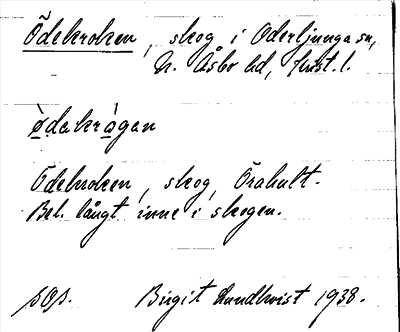 Ödekroken, skog i Oderljunga sn,
N. Åsbo hd, Krist. l.
ødakrågan
Ödekroken, skog, Örahult.
Bel. långt inne i skogen.
Birgit Lundkvist 1938.